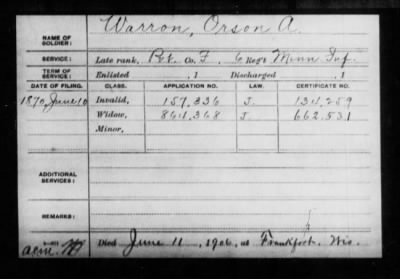 Warron, Orson A.
NAME OF SOLDIER:
SERVICE: Late rank, Pvt. Co. F, 6 Reg't Minn Inf.
TERM OF SERVICE: Enlisted , 1 Discharged , 1
DATE OF FILING. CLASS. APPLICATION NO. LAW. CERTIFICATE NO.
1870, June 10 Invalid, 157,336 J. 134,259
Widow, 864,368 J 662,531
Minor,
ADDITIONAL SERVICES:
REMARKS:
Died June 11, 1906, at Frankfort, Wis.